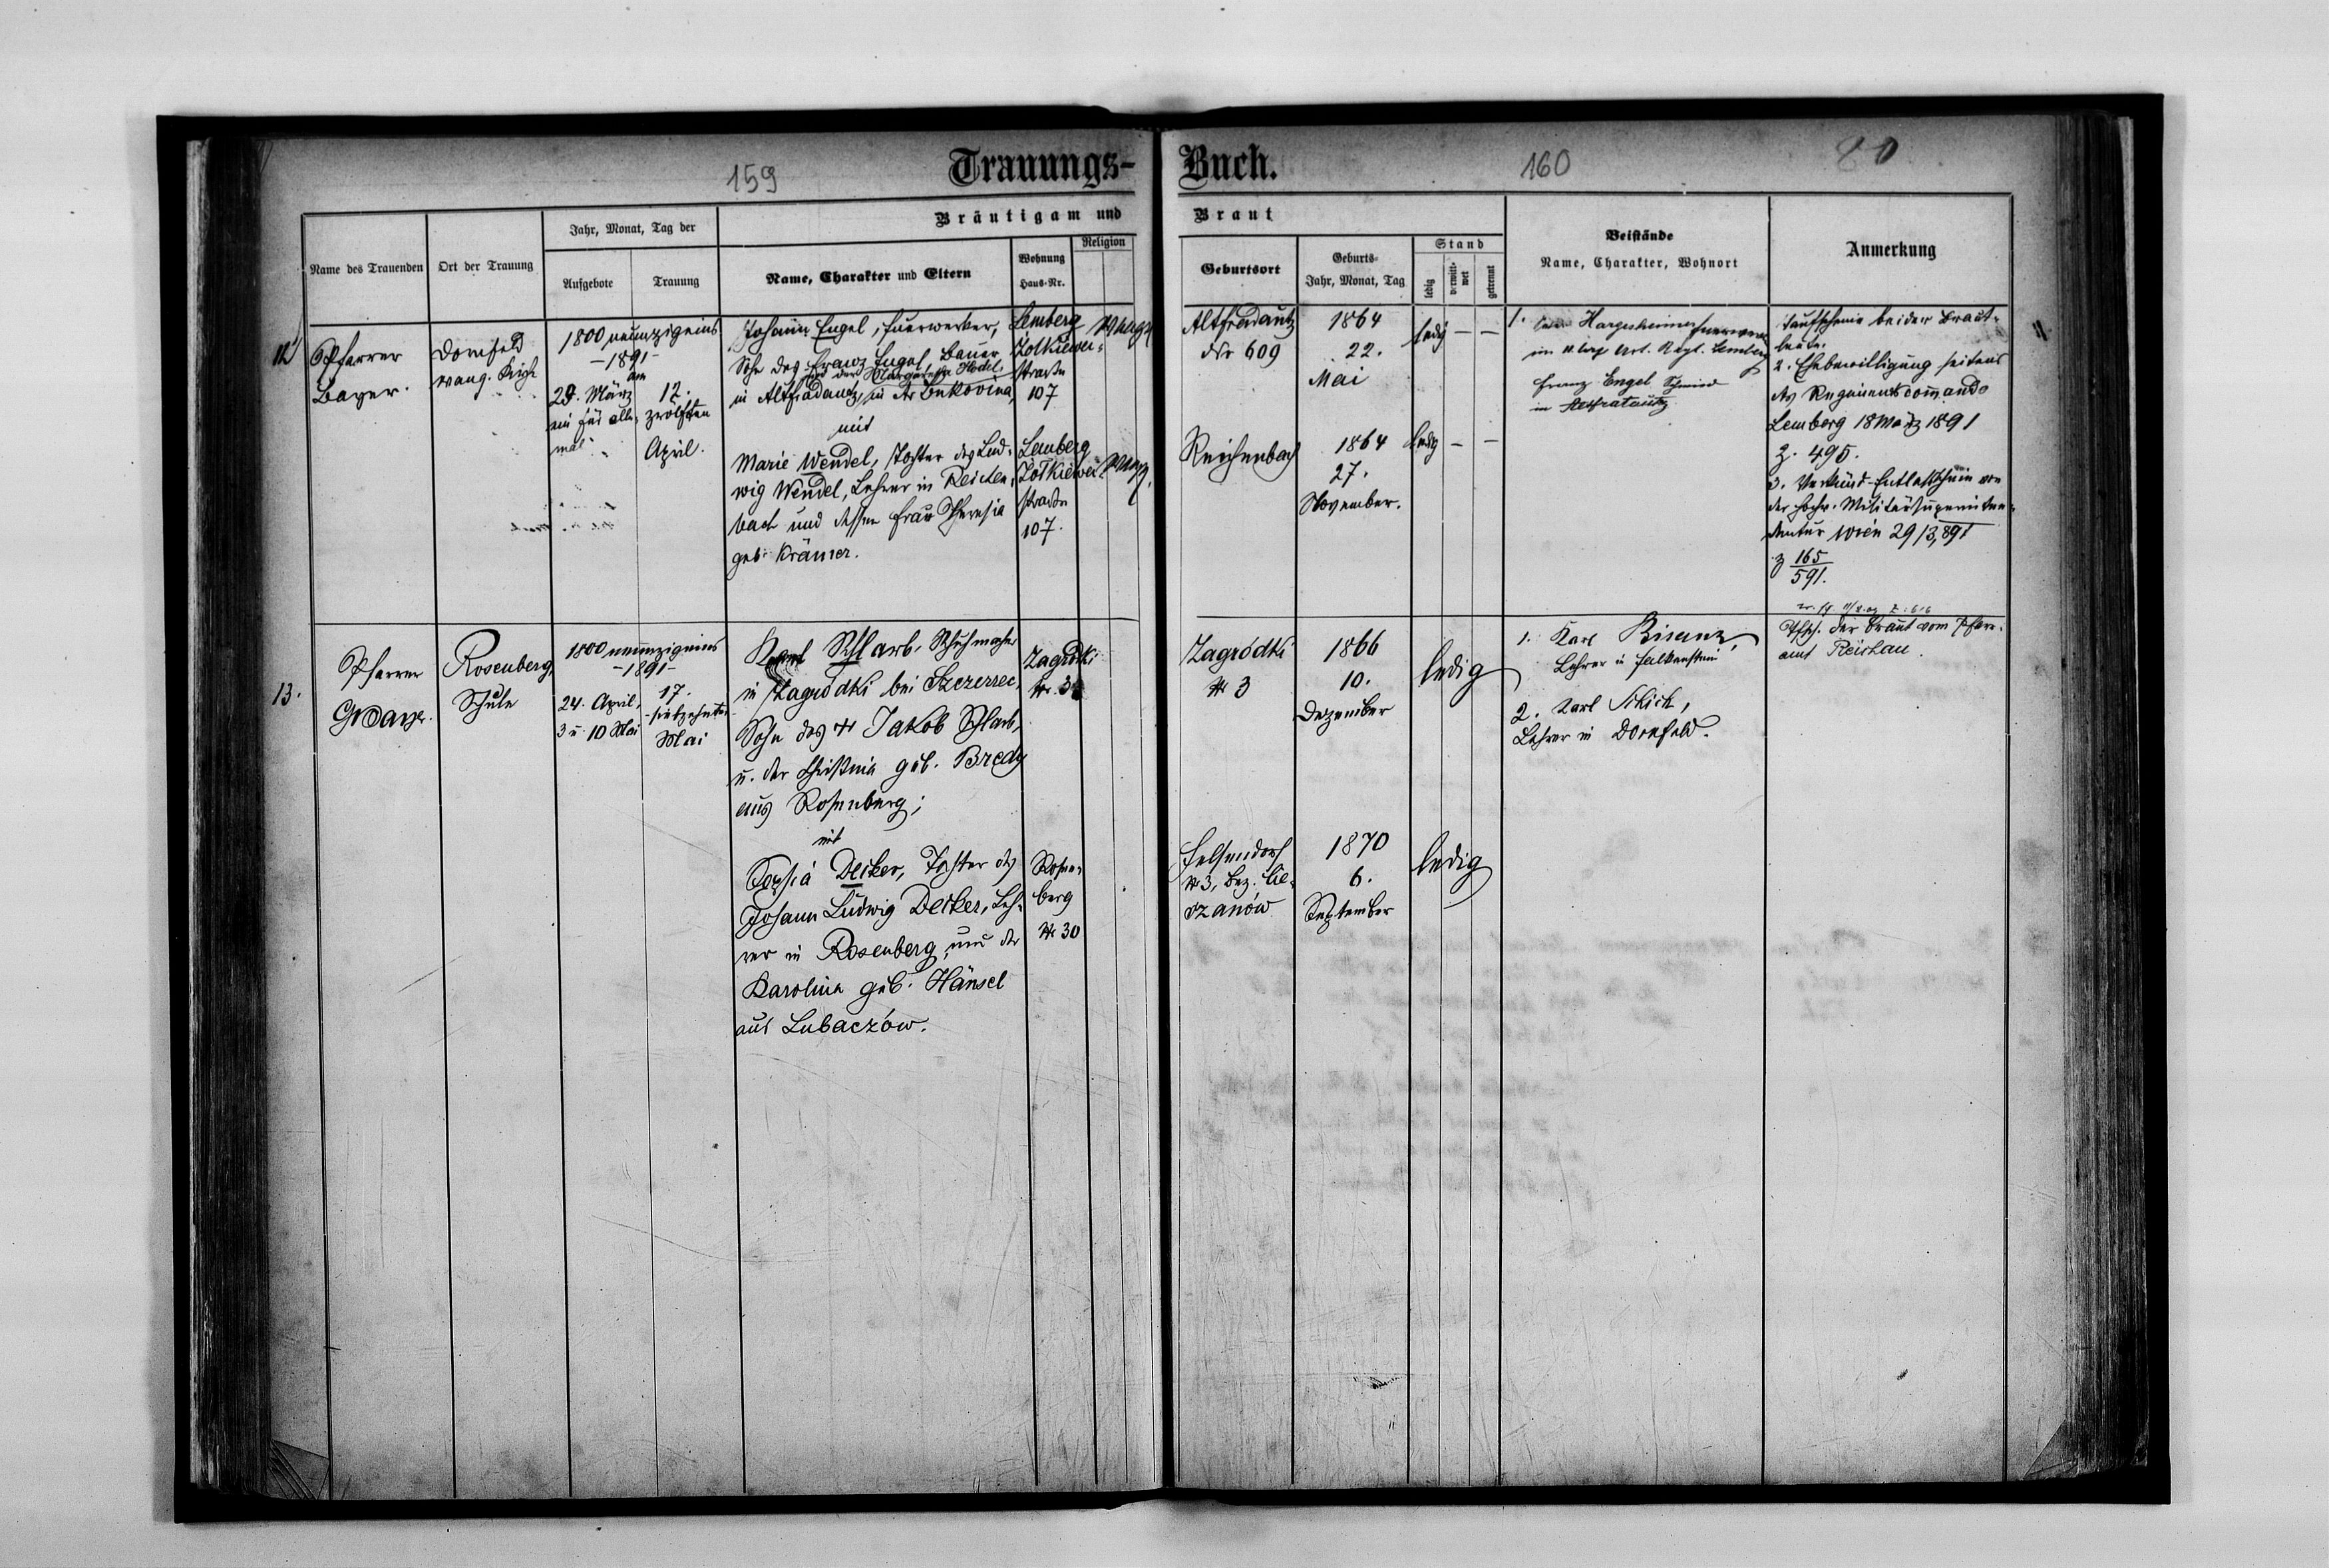 159
Trauungs-
Buch.
160
80
Name des Trauenden
Ort der Trauung
Jahr, Monat, Tag der
Aufgebote
Trauung
Bräutigam und
Name, Charakter und Eltern
Wohnung
Haus-Nr.
Religion
Braut
Geburtsort
Geburts-
Jahr, Monat, Tag
Stand
ledig
verwitt-
wet
getrennt
Beistände
Name, Charakter, Wohnort
Anmerkung
12
Pfarrer
Bayer.
Dornfeld
evang. Kirche
1800 neunzigeins
-1891-
29. März
ein für alle-
mal.
am
12.
zwölften
April.
Johann Engel, Feuerwerker,
Sohn des Franz Engel, Bauer
und der Margaretha Hodel,
in Altfradautz, in der Bukovina,
mit
Marie Wendel, Tochter des Lud-
wig Wendel, Lehrer in Reichen-
bach und dessen Frau Theresia
geb. Krämer.
Lemberg
Zolkiewer-
strasse
107
Lemberg
Zolkiewer-
strasse
107.
evang.
evang.
Altfradautz
Nr 609
1864
22.
Mai
ledig – –
Reichenbach
1864
27.
November.
ledig – –
1. Hargesheimer Feuerwerker
im 11. Corps Art. Regt. Lemberg
Franz Engel Schmied
in Altfratautz
Taufscheine beider Braut-
leute.
2. Ehebewilligung seitens
des Regimentskommando
Lemberg 18 März 1891
Z. 495.
3. Verkünd-Entlaßschein von
der hochw. Militärsuperinten-
dentur Wien 29/3,891
Z 165
591.
13.
Pfarrer
G Bayer.
Rosenberg,
Schule
1800 neunzigeins
-1891-
24. April,
3 u. 10 Mai
17.
siebzehnten
Mai
Karl Schlarb, Schuhmacher
in Zagródki bei Szczerzec,
Sohn des † Jakob Schlarb,
u. der Christina geb. Bredy
aus Rosenberg;
mit
Sophia Decker, Tochter des
Johann Ludwig Decker, Leh-
rer in Rosenberg, und der
Karolina geb. Hänsel
aus Lubaczów.
Zagródki
Nr. 3
Rosen-
berg
Nr 30
Zagródki
Nr 3
1866
10.
Dezember
ledig
Felsendorf
Nr 3, Bez. Cie-
szanów
1870
6.
September
ledig
1. Karl Bisanz,
Lehrer in Falkenstein
2. Karl Schick,
Lehrer in Dornfeld.
Tfsch. der Braut vom Pfarr-
amt Reichau.